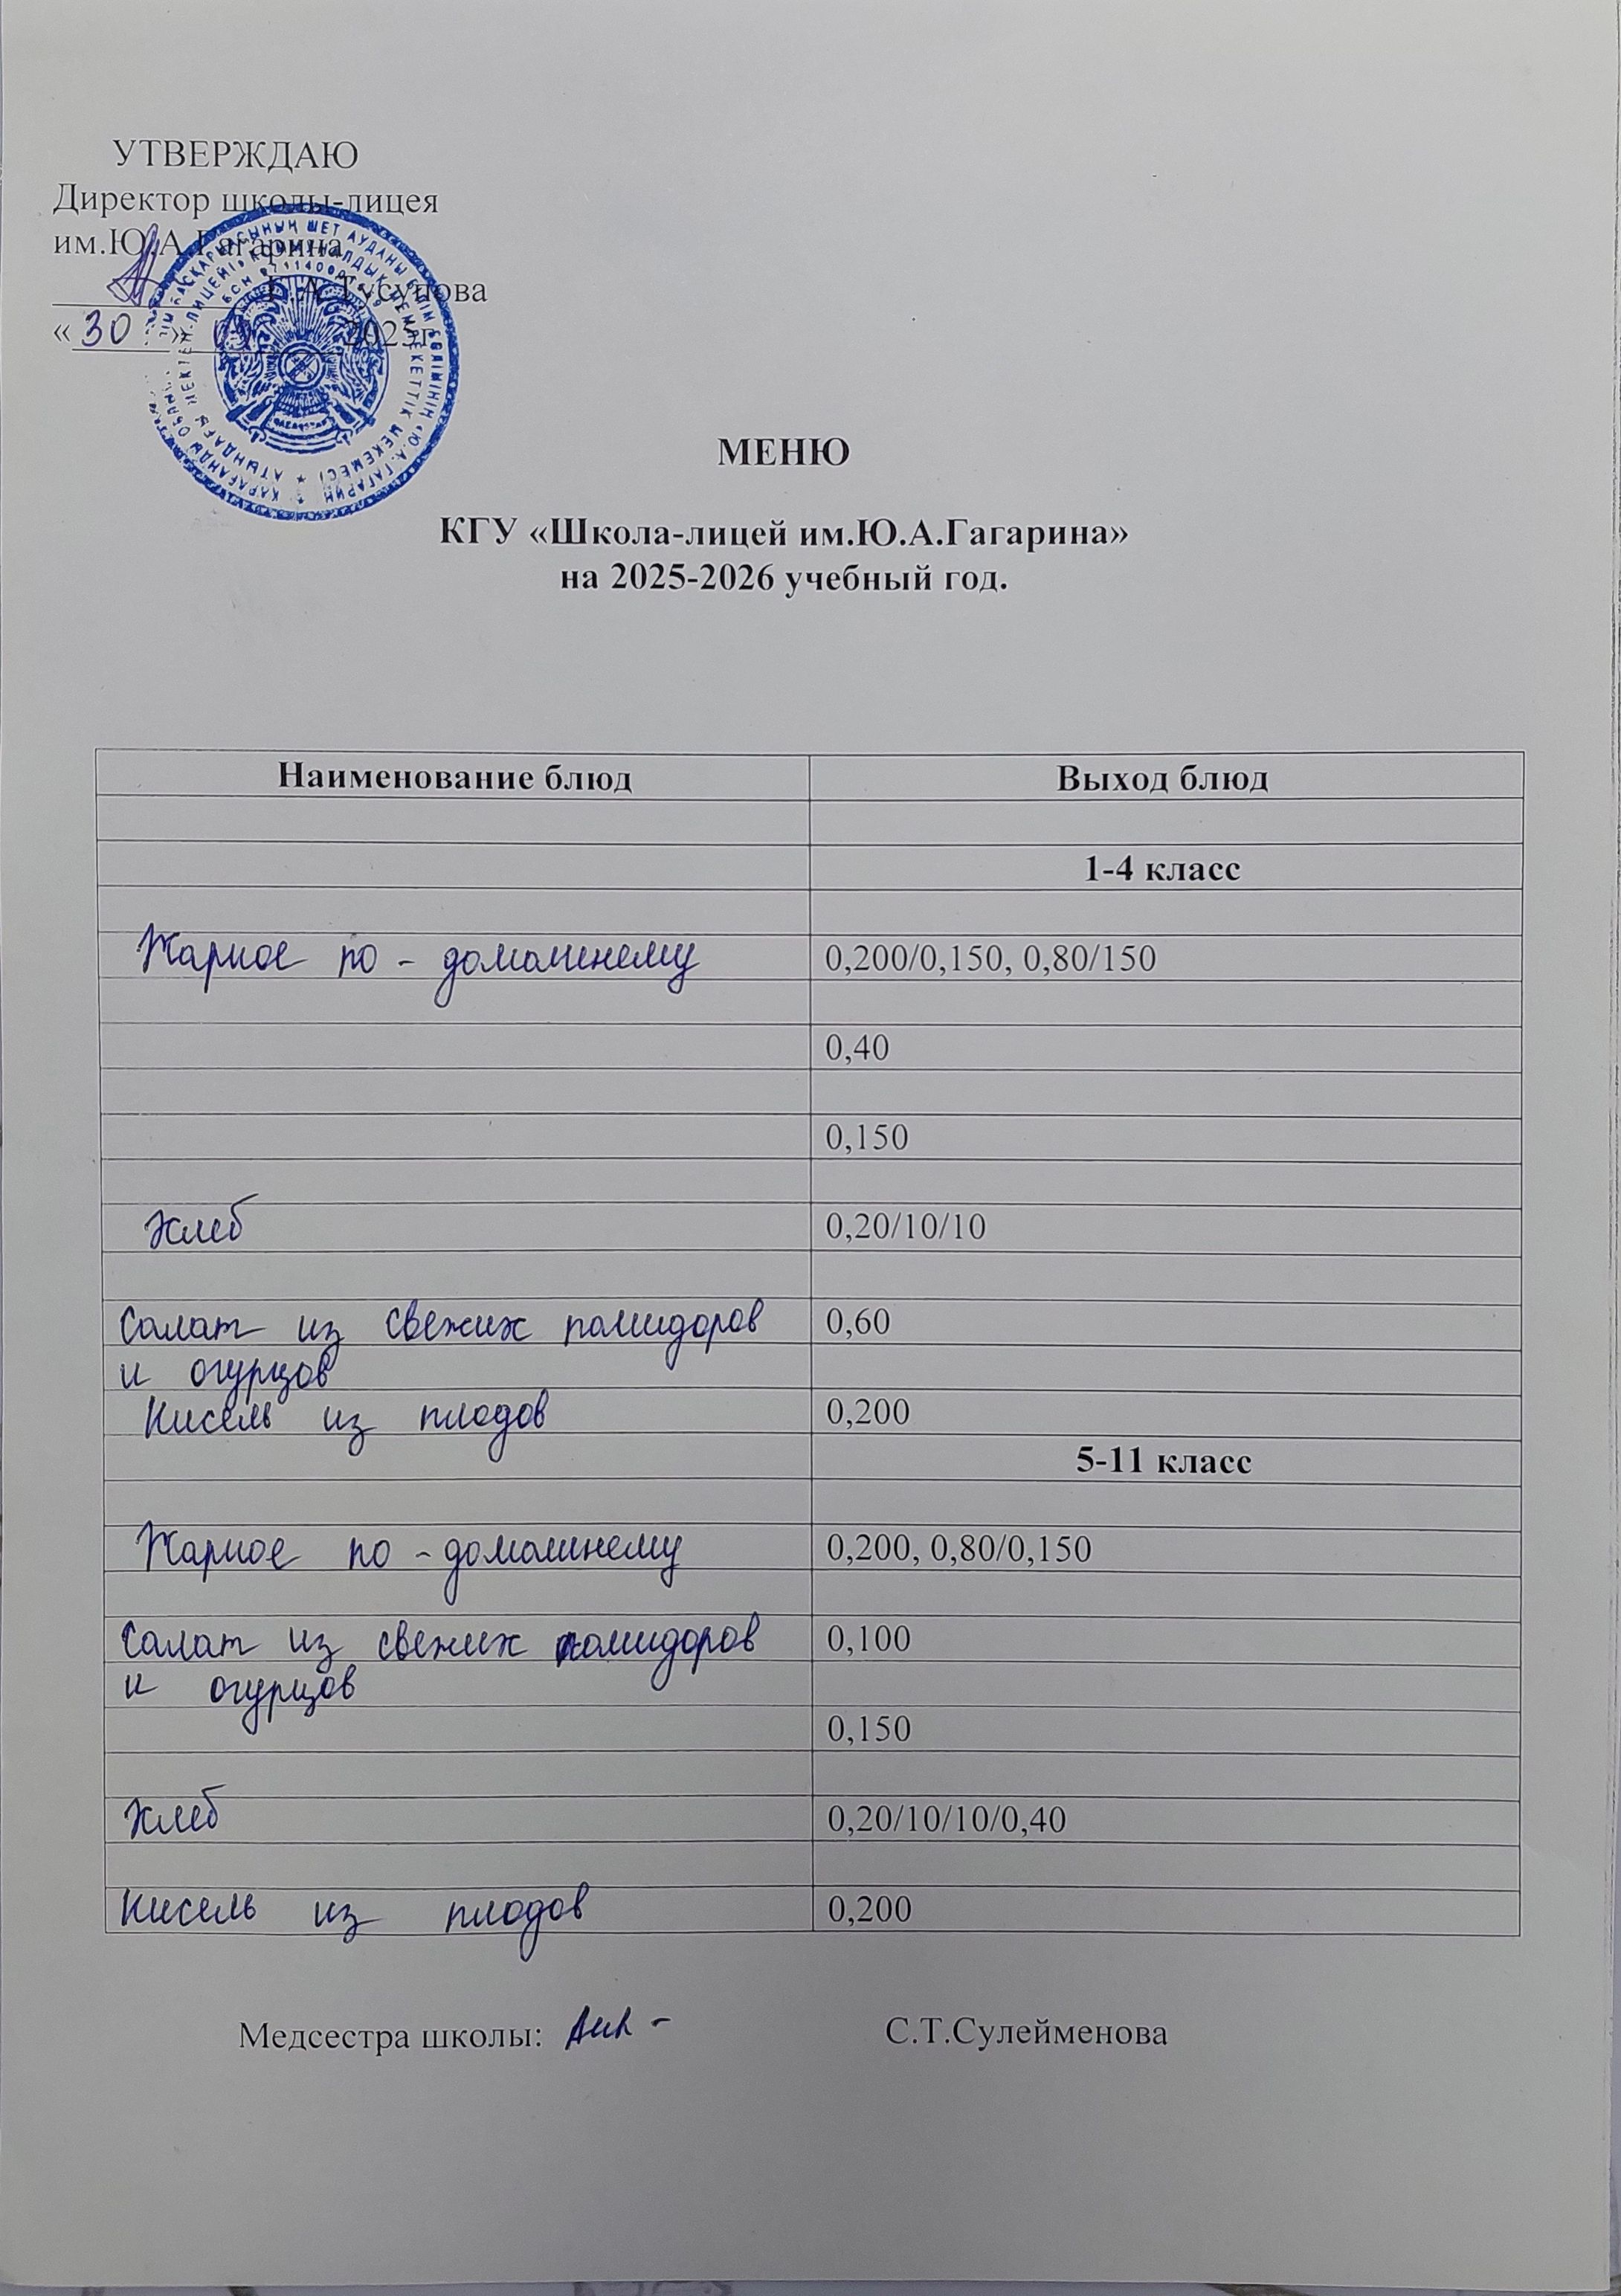 УТВЕРЖДАЮ
Директор школы-лицея
им.Ю.А.Гагарина
Тусупова
«30» 2025г
МЕНЮ
КГУ «Школа-лицей им.Ю.А.Гагарина»
на 2025-2026 учебный год.
Наименование блюд Выход блюд
1-4 класс
Жаркое по-домашнему 0,200/0,150, 0,80/150
0,40
0,150
Хлеб 0,20/10/10
Салат из свежих помидоров 0,60
и огурцов
Кисель из плодов 0,200
5-11 класс
Жаркое по-домашнему 0,200, 0,80/0,150
Салат из свежих помидоров 0,100
и огурцов
0,150
Хлеб 0,20/10/10/0,40
Кисель из плодов 0,200
Медсестра школы: С.Т.Сулейменова